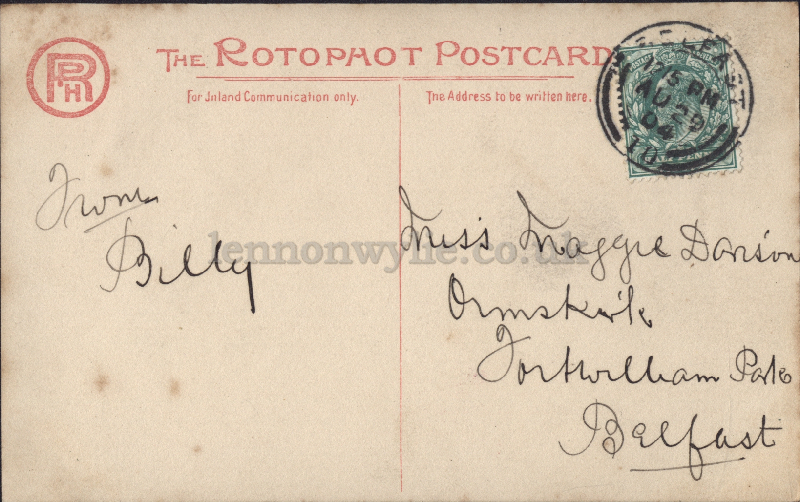 RPPH
THE ROTOPHOT POSTCARD
For Inland Communication only.
The Address to be written here.
BELFAST
12.15 PM
AU 29
04
From
Billy
Miss Maggie Davison
Ormskirk
Fortwilliam Park
Belfast
lennonwylie.co.uk